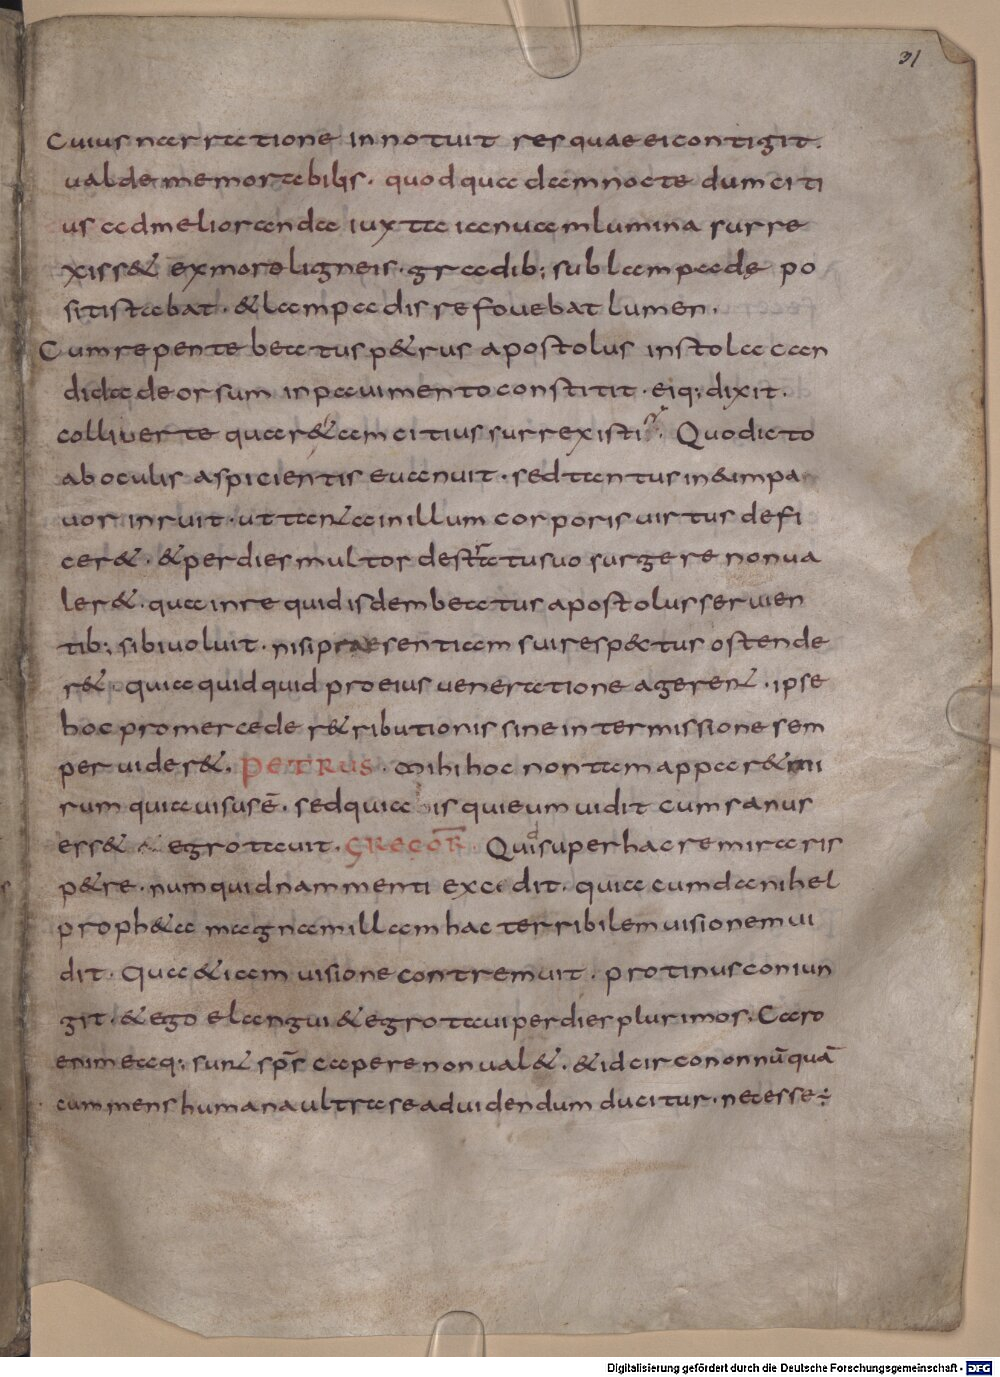 31
Cuius narratione innotuit res quae ei contigit.
ualde memorabilis. quod quadam nocte dum citi
us ad melioranda iuxta ianuam lumina surre
xiss& ex more ligneis. gradib; sub lampade po
sitis stabat. & lampadis refouebat lumen.
Cum repente beatus p&rus apostolus in stola can
dida deorsum in pauimento constitit. eiq; dixit.
colliuerte quare tam citius surrexisti. Quo dicto
ab oculis aspicientis euanuit. sed tantus in& impa
uor inruit. ut tanta in illum corporis uirtus defi
cer&. & per dies multos de stratu suo surgere non ua
ler&. qua in re quid isdem beatus apostolus seruien
tib; sibi uoluit. nisi praesentiam sui resp&tus ostende
r&. quia quidquid pro eius ueneratione agerent. ipse
hoc pro mercede r&ributionis sine intermissione sem
per uider&. PETRUS. Mihi hoc non tam appar& mi
rum quia uisus ē. sed quia is qui eum uidit cum sanus
ess& egrotauit. GREGOR̄. Quid super hac re miraris
p&re. numquidnam menti excedit. quia cum danihel
proph&a magnam illam hac terribilem uisionem ui
dit. Qua &iam uisione contremuit. protinus coniun
git. & ego elangui & egrotaui per dies plurimos. Caro
enim ea q; sunt sp̄s capere non ual&. & idcirco nonnū quā
cum mens humana ultra se ad uidendum ducitur. necesse ÷
Digitalisierung gefördert durch die Deutsche Forschungsgemeinschaft - DFG